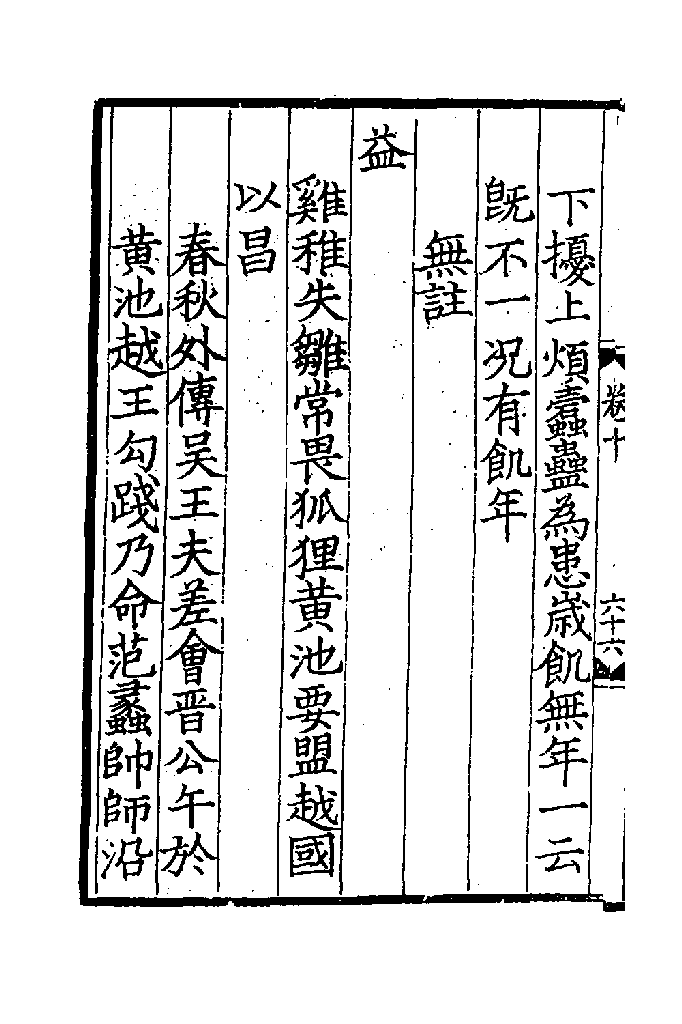 卷十
六十六
下擾上煩蠧蠱為患歳飢無年一云
旣不一况有飢年
無註
益
雞稚失雛常畏狐狸黄池要盟越國
以昌
春秋外傳吴王夫差會晋公午於
黄池越王勾踐乃命范蠡帥師沿